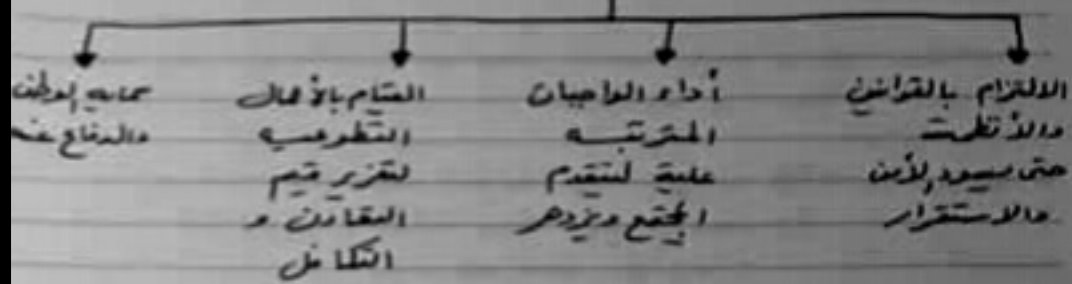 الالتزام بالقوانين
والأنظمة
حتى يسود الأمن
والاستقرار
أداء الواجبات
المترتبه
علية لتيقدم
المجتمع ويزدهر
القيام بالأعمال
التطوعيه
لتعزيز قيم
التعاون و
التكافل
حمايه الوطن
والدفاع عنه